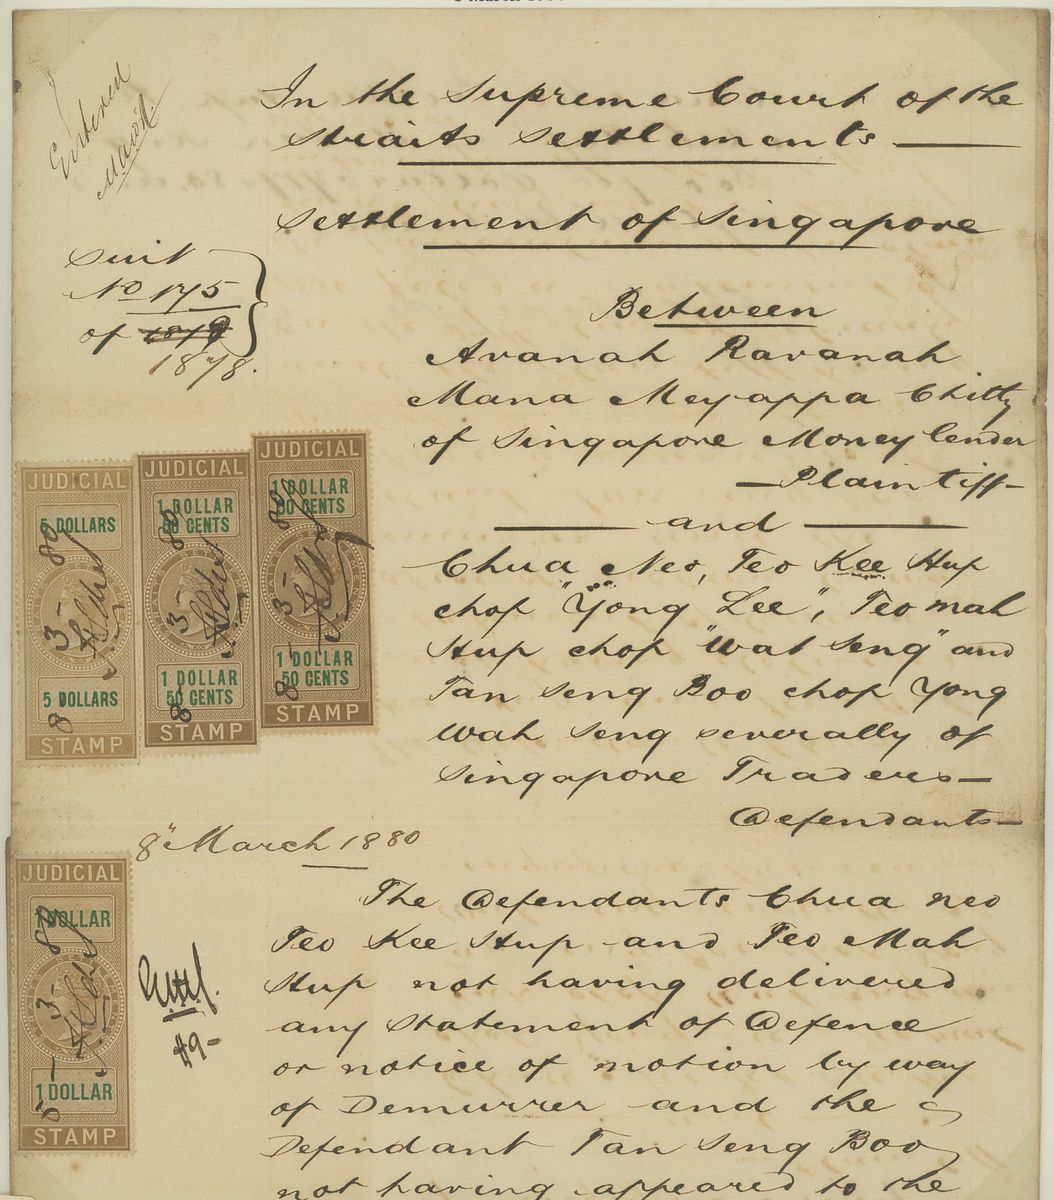 Entered
In the Supreme Court of the
Straits Settlements
Settlement of Singapore
Suit
No 175
of 1879
1878.
Between
Avanah Ravanah
Mana Meyappa Chitty
of Singapore Money lender
Plaintiff
and
Chua Neo, Teo Kee Hup
chop "Yong Lee", Teo Mah
Hup chop "Wat Seng" and
Tan Seng Boo chop Yong
Wah Seng severally of
Singapore Traders
Defendants
JUDICIAL
5 DOLLARS
8 - 3 - 80
5 DOLLARS
STAMP
JUDICIAL
1 DOLLAR
50 CENTS
8 - 3 - 80
1 DOLLAR
50 CENTS
STAMP
JUDICIAL
1 DOLLAR
50 CENTS
8 - 3 - 80
1 DOLLAR
50 CENTS
STAMP
8" March 1880
JUDICIAL
1 DOLLAR
3 - 80
1 DOLLAR
STAMP
$9-
The Defendants Chua Neo
Teo Kee Hup and Teo Mah
Hup not having delivered
any Statement of Defence
or notice of motion by way
of Demurrer and the
Defendant Tan Seng Boo
not having appeared to the